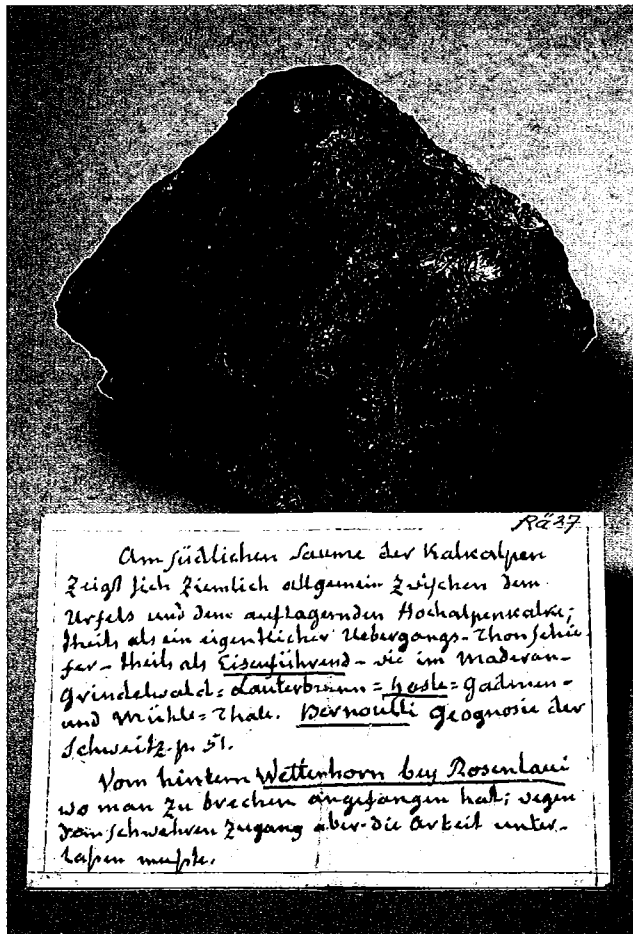 Rä 37
Am südlichen Saume der Kalkalpen
zeigt sich ziemlich allgemein zwischen dem
Urfels und dem auflagernden Hochalpenkalke;
theils als ein eigentlicher Uebergangs-Thonschie-
fer - theils als Eisenführend - wie im Maderan-
Grindelwald= Lauterbrunn= Hasle= Gadmen-
und Mühle= Thale. Bernoulli Geognosie der
Schweitz p. 51.
Vom hintern Wetterhorn bey Rosenlaui
wo man zu brechen angefangen hat; wegen
dem schwehren Zugang aber die Arbeit unter-
laßen mußte.